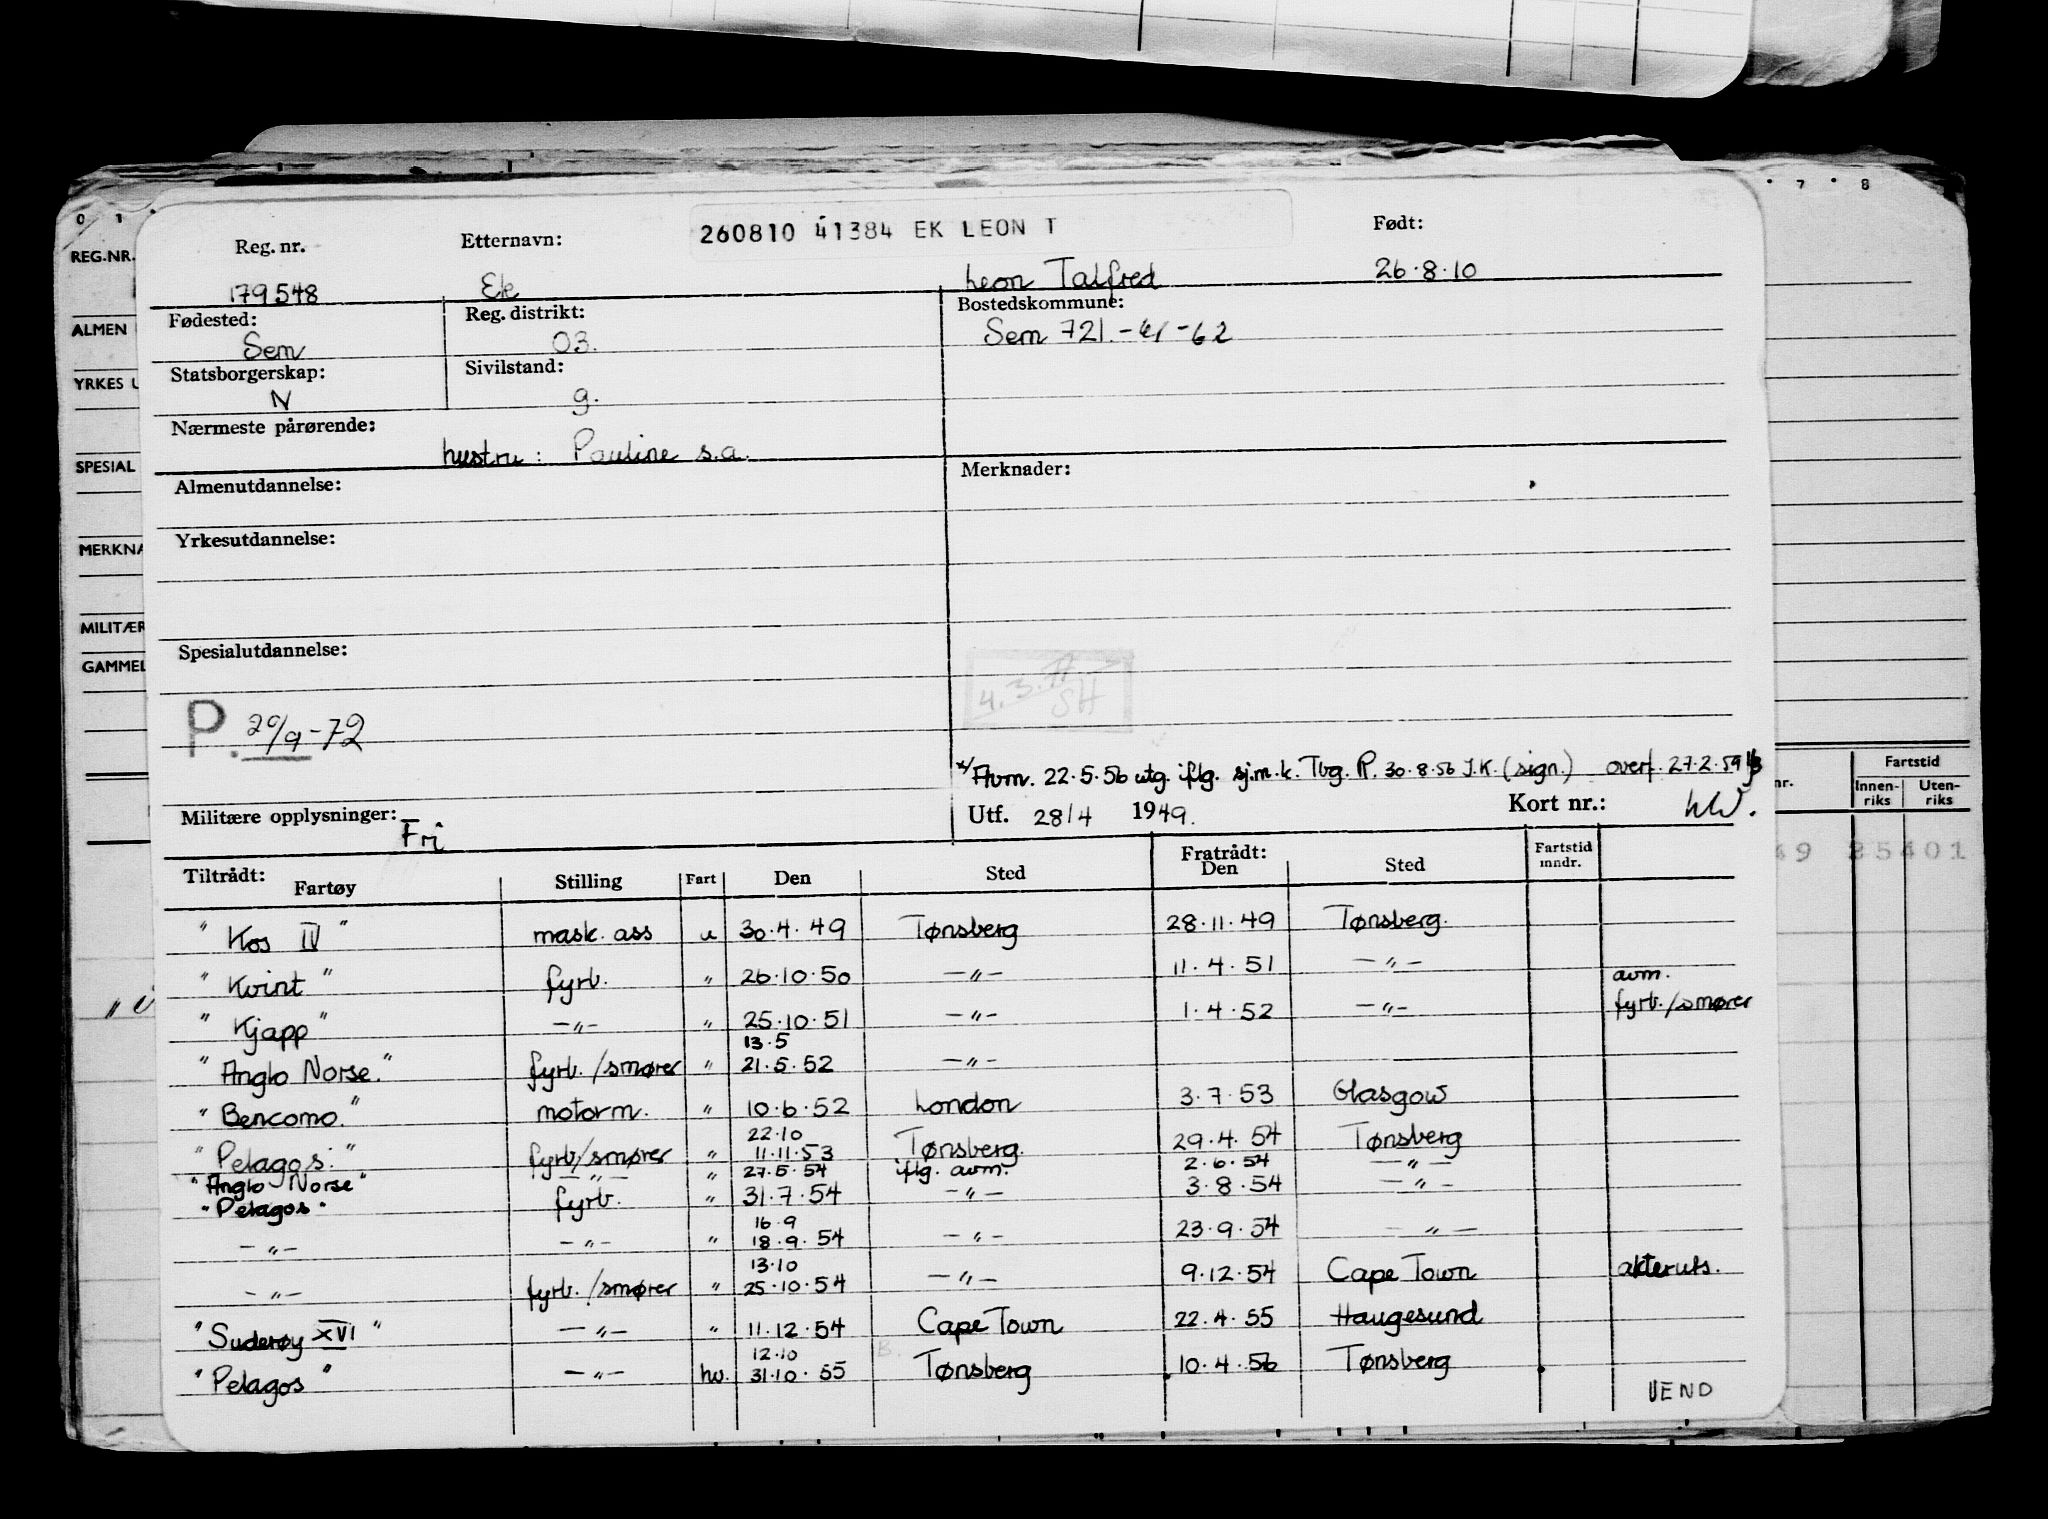 0 1 7 8
REG.NR.
ALMEN
YRKES U
SPESIAL
MERKNA
MILITÆR
GAMMEL
260810 41384 EK LEON T
Reg. nr. Etternavn: Født:
179548 Ek Leon Talfred 26.8.10
Fødested: Reg. distrikt: Bostedskommune:
Sem 03. Sem 721.-41-62
Statsborgerskap: Sivilstand:
N g.
Nærmeste pårørende:
hustru: Pauline s.a.
Almenutdannelse: Merknader:
Yrkesutdannelse:
Spesialutdannelse:
4.3.77
SH
P. 20/9-72
x/ Avm. 22.5.56 utg. iflg. sj.m.k. Tbg. P. 30.8.56 J.K. (sign.) overf. 27.2.59
Militære opplysninger: Fri
Utf. 28/4 1949. Kort nr.: hW.
nr. Fartstid
Innen-riks Uten-riks
49 25401
Tiltrådt: Fratrådt:
Fartøy Stilling Fart Den Sted Den Sted Fartstid mndr.
"Kos IV" mask. ass u 30.4.49 Tønsberg 28.11.49 Tønsberg.
"Kvint" fyrb. " 26.10.50 -"- 11.4.51 -"- avm.
"Kjapp" -"- " 25.10.51 -"- 1.4.52 -"- fyrb./smører
13.5
"Anglo Norse." fyrb./smører " 21.5.52 -"-
"Bencomo." motorm. " 10.6.52 London 3.7.53 Glasgow
22.10
"Pelagos." fyrb/smører " 11.11.53 Tønsberg. 29.4.54 Tønsberg
"Anglo Norse" -"- " 27.5.54 iflg. avm. 2.6.54 -"-
"Pelagos" fyrb. " 31.7.54 -"- 3.8.54 -"-
16.9
-"- -"- " 18.9.54 -"- 23.9.54 -"-
13.10
-"- fyrb./smører " 25.10.54 -"- 9.12.54 Cape Town akteruts.
"Suderøy XVI" -"- " 11.12.54 Cape Town 22.4.55 Haugesund
12.10 B.
"Pelagos" -"- hv. 31.10.55 Tønsberg 10.4.56 Tønsberg
VEND